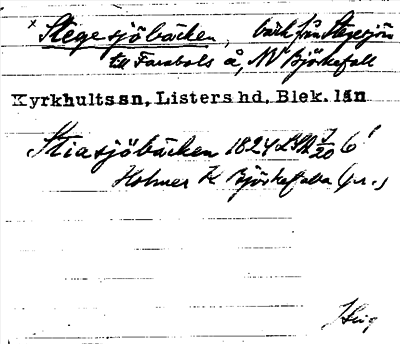 × Stegesjöbäcken, bäck från Stegesjön
till Farabols å, NV Björkefall
Kyrkhults sn, Listers hd, Blek. län
Stiasjöbäcken 1824 LSA 7/20 6¹
Holmer K Björkefalla (pr.)